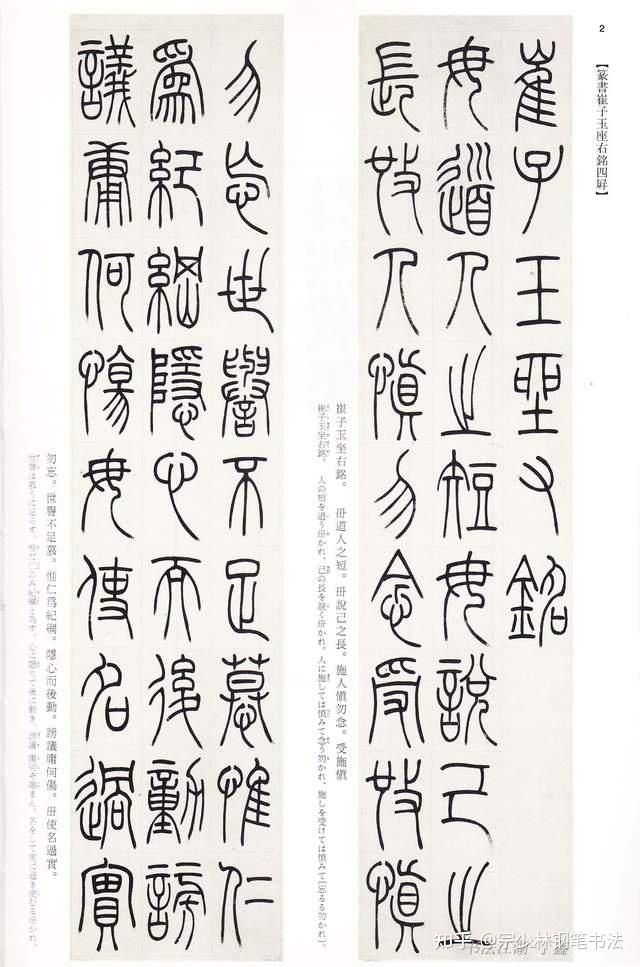 2
【篆書崔子玉座右銘四屛】
崔子玉坐右銘
毋道人之短毋說己之
長施人愼勿念受施愼
崔子玉坐右銘。 毋道人之短。毋說己之長。施人愼勿念。受施愼
崔子玉坐右銘。 人の短を道う毋かれ、己の長を説く毋かれ。人に施しては慎みて念う勿かれ、施しを受けては慎みて〔忘るる勿かれ〕。
勿忘世譽不足慕惟仁
爲紀綱隱心而後動謗
議庸何傷毋使名過實
勿忘。世譽不足慕。惟仁爲紀綱。隱心而後動。謗議庸何傷。毋使名過實。
世譽は慕うに足らず、惟だ仁のみ紀綱と為す。心に隠りて後に動き、謗議庸何ぞ傷まん。名をして実に過ぎ使むる毋かれ、
知乎 @宗少林钢笔书法